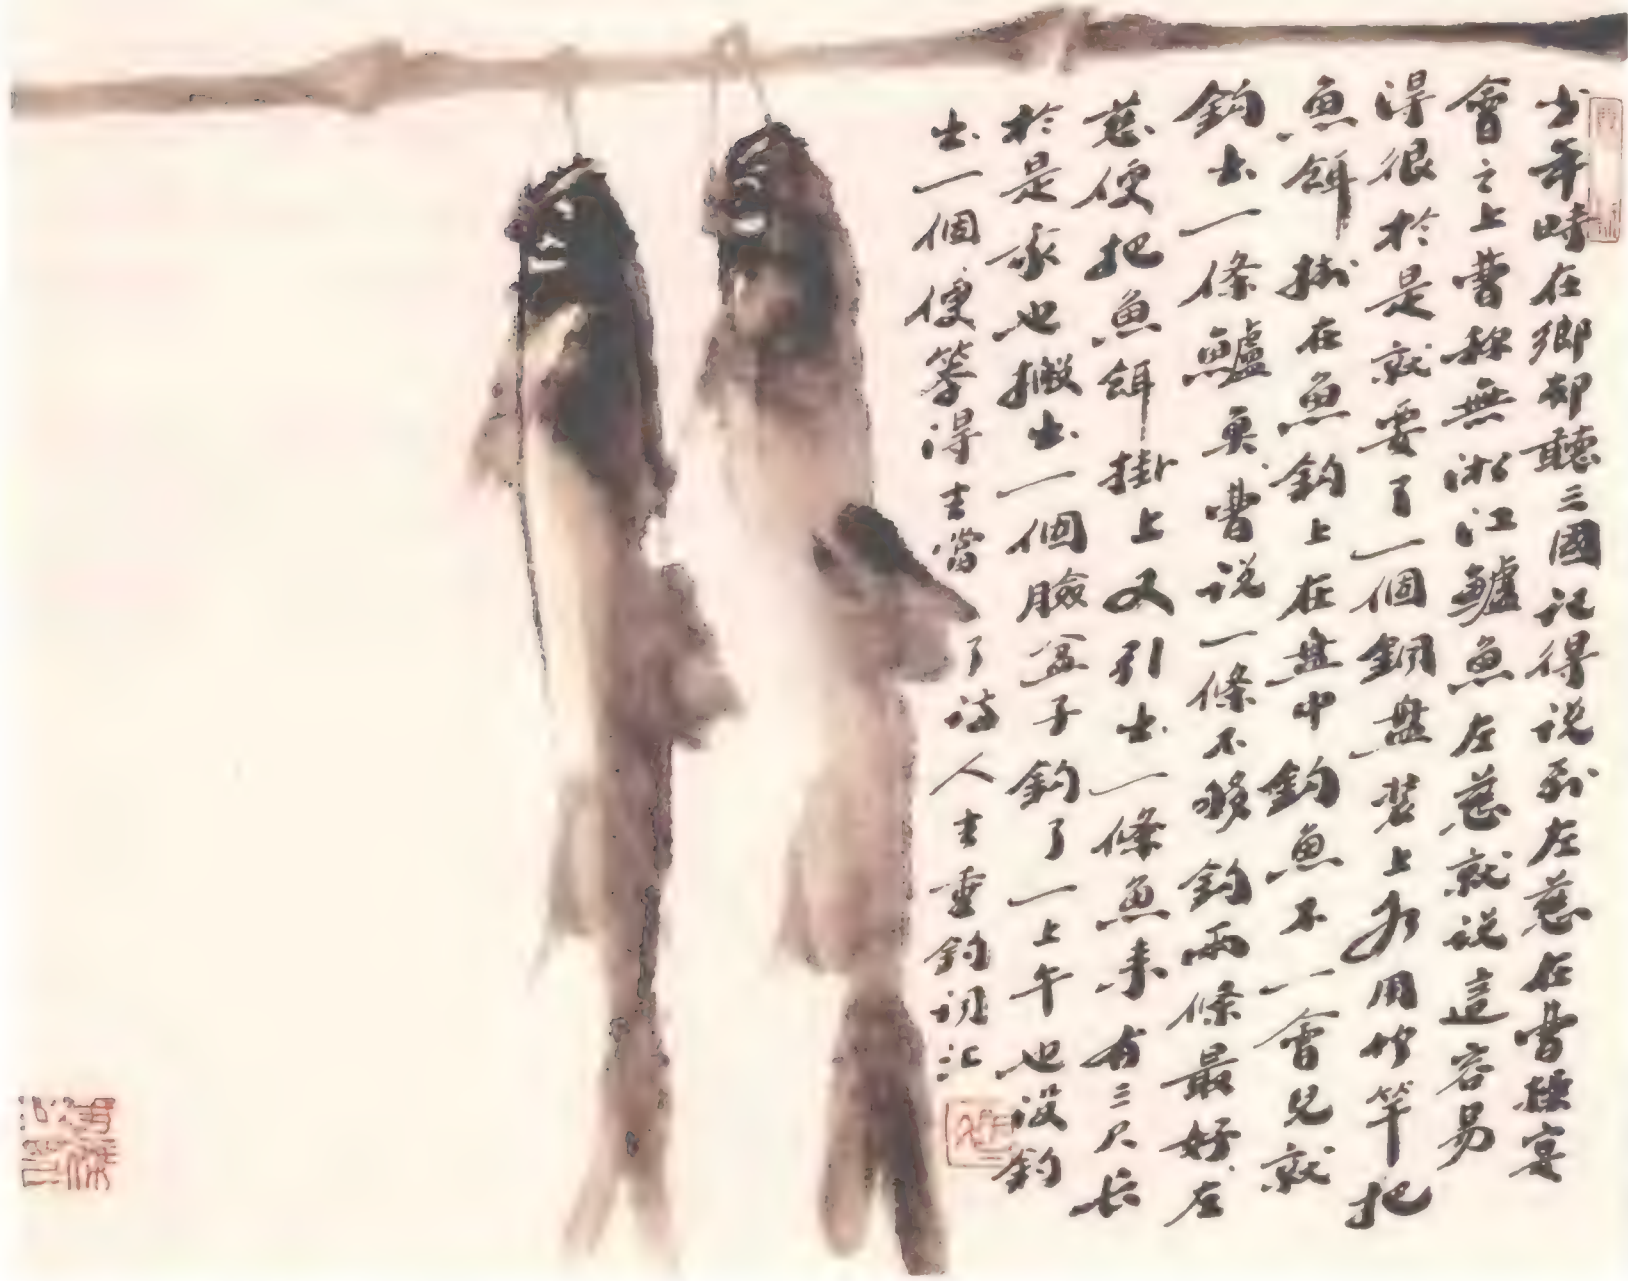 少年時在鄉却聽三國記得说到左慈在曹操宴
會之上曹操無淞江鱸魚左慈就说這容易
得很於是就要了一個銅盘裝上水用竹竿把
魚餌掛在魚鈎上在盘中鈎魚不一會兒就
鈎出一條鱸魚曹说一條不够鈎兩條最好左
慈便把魚餌掛上又引出一條魚来有三尺长
於是我也搬出一個臉盆子鈎了一上午也没钓
出一個便等得去當了诗人去垂钓词汇